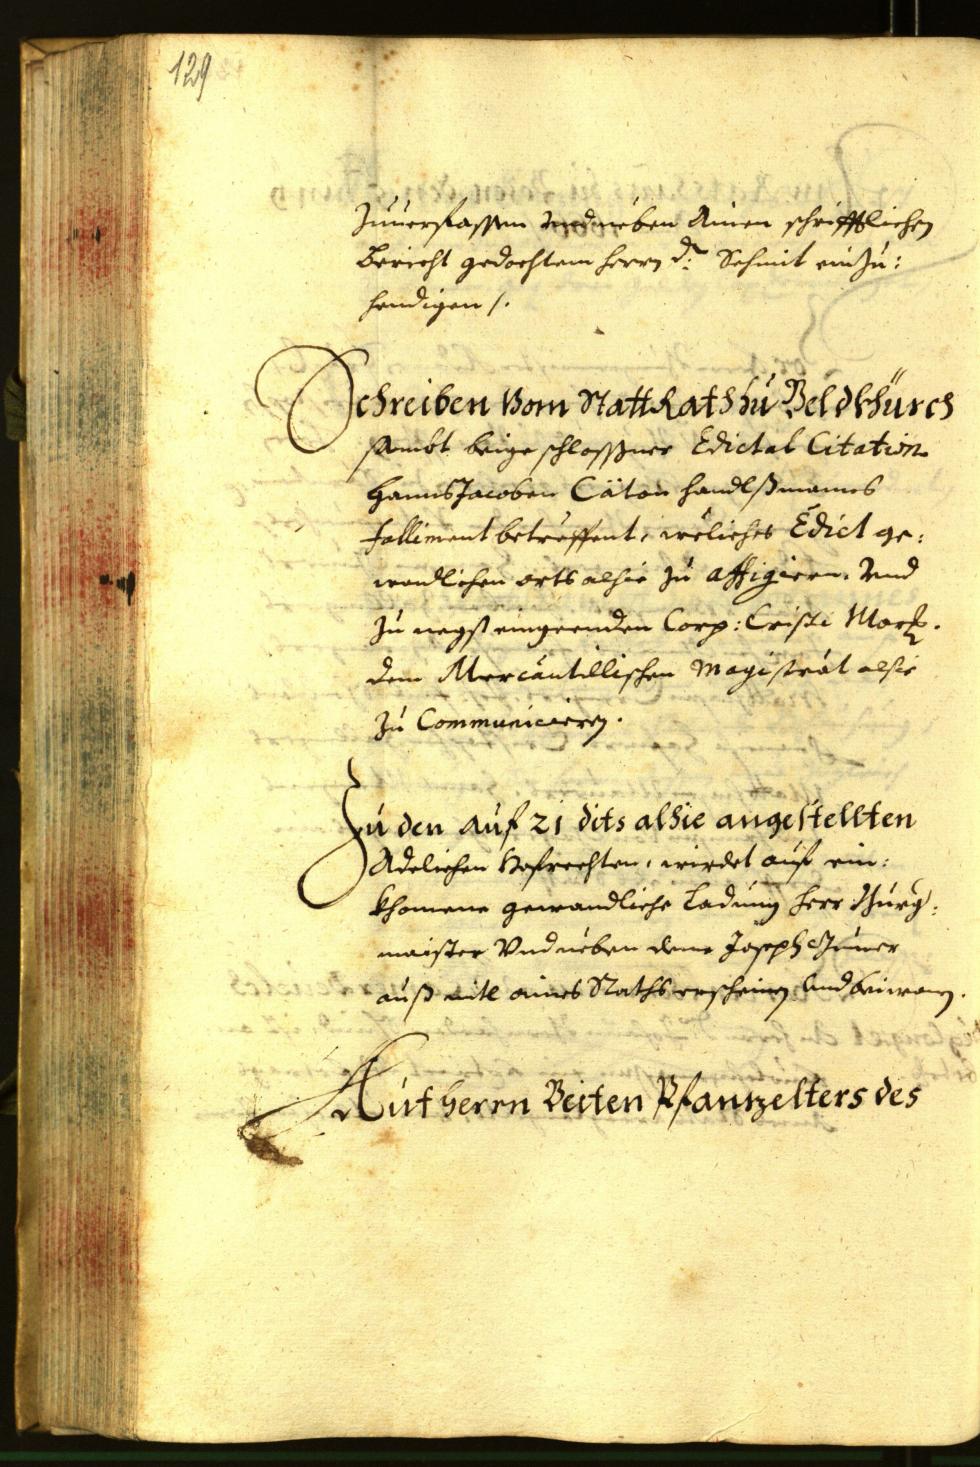 129
Zuuerfassen vnd neben ainen schrifftlichen
Bericht gedachtem herrn Dr: Schmit einzu:
hendigen /.
Schreiben Vom StattRath zu Veldkhürch
sambt beigeschlossner Edictal Citation
Hanns Jacoben Cätan handlßmannes
falliment betreffent, weliches Edict ge:
wendlichen orts alhie zu affigiern. Vnd
zu negst eingeenden Corp: Cristi Markt.
dem Mercantilischen Magistrat alhie
zu Communicieren.
Zu den auf 21 dits alhie angestellten
Adelichen Hofrechten, wirdet auf ein:
khomene gewandliche Ladung herr Burg:
maister Vnd neben deme Joseph
auß mitl aines Raths erscheinen Vnd beiwonen.
Laut herrn Veiten Pfantzelters des